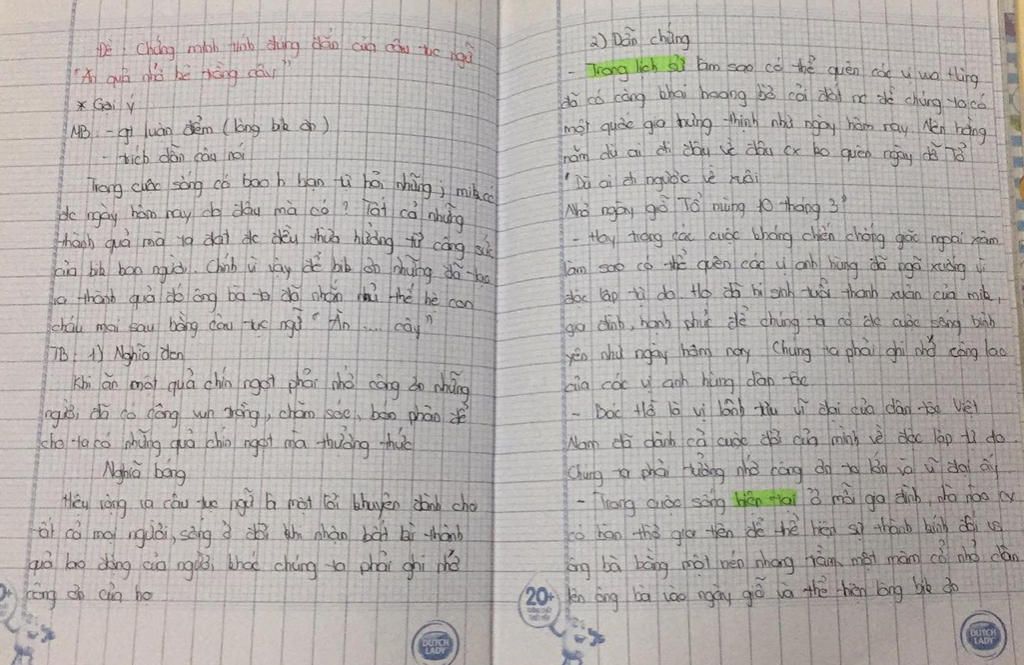 Đề: Chứng minh tính đúng đắn của câu tục ngữ
"Ăn quả nhớ kẻ trồng cây"
* Gợi ý
MB: - gt luận điểm (lòng biết ơn)
- trích dẫn câu nói
Trong cuộc sống có bao h bạn tự hỏi những j mik có
đc ngày hôm nay do đâu mà có? Tất cả những
thành quả mà ta đạt đc đều thừa hưởng từ công sức
của bik bao người. Chính vì vậy để bik ơn những đã tạo
ra thành quả đó ông bà ta đã nhắn nhủ thế hệ con
cháu mai sau bằng câu tục ngữ "Ăn .... cây"
TB: 1) Nghĩa đen
Khi ăn một quả chín ngọt phải nhớ công ơn những
người đã có công vun trồng, chăm sóc, bón phân để
cho ta có những quả chín ngọt mà thưởng thức
Nghĩa bóng
Hiểu rộng ra câu tục ngữ là một lời khuyên dành cho
tất cả mọi người, sống ở đời khi nhận bất kì thành
quả lao động của người khác chúng ta phải ghi nhớ
công ơn của họ
2) Dẫn chứng
- Trong lịch sử làm sao có thể quên các vị vua Hùng
đã có công khai hoang bờ cõi đất nc để chúng ta có
một quốc gia hưng thịnh như ngày hôm nay. Nên hằng
năm dù ai đi đâu về đâu cx ko quên ngày giỗ Tổ
"Dù ai đi ngược về xuôi
Nhớ ngày giỗ Tổ mùng 10 tháng 3"
- Hay trong các cuộc kháng chiến chống giặc ngoại xâm
làm sao có thể quên các vị anh hùng đã ngã xuống vì
độc lập tự do. Họ đã hi sinh tuổi thanh xuân của mik,
gia đình, hạnh phúc để chúng ta có đc cuộc sống bình
yên như ngày hôm nay. Chúng ta phải ghi nhớ công lao
của các vị anh hùng dân tộc
- Bác Hồ là vị lãnh tụ vĩ đại của dân tộc Việt
Nam đã dành cả cuộc đời của mình về độc lập tự do.
Chúng ta phải tưởng nhớ công ơn to lớn và vĩ đại ấy
- Trong cuộc sống hiện tại ở mỗi gia đình, nhà nào cx
có bàn thờ gia tiên để thể hiện sự thành kính đối vs
ông bà bằng một nén nhang trầm, một mâm cỗ nhỏ dân
lên ông bà vào ngày giỗ và thể hiện lòng bik ơn
20+
DUTCH LADY
DUTCH LADY